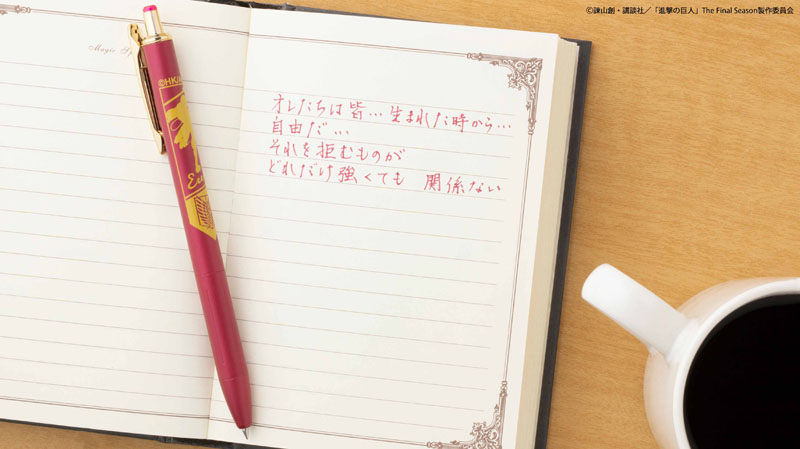 ©諫山創・講談社／「進撃の巨人」The Final Season製作委員会
©HK/
オレたちは皆… 生まれた時から…
自由だ…
それを拒むものが
どれだけ強くても 関係ない